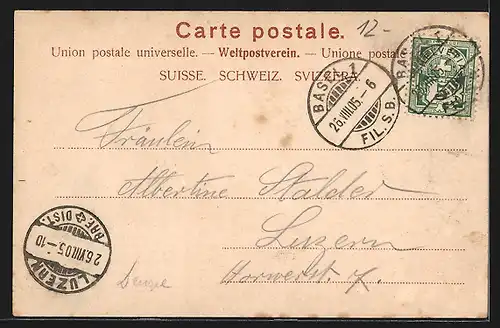 Carte postale.
12-
Union postale universelle. — Weltpostverein. — Unione posta
SUISSE. SCHWEIZ. SVIZZERA.
BASEL 1
26.VII.05.-6
FIL. S.B.
Fräulein
Albertine Stalder
Luzern
Horwerstr. 7.
LUZERN
26.VII.05.-10
BRF. DIST.